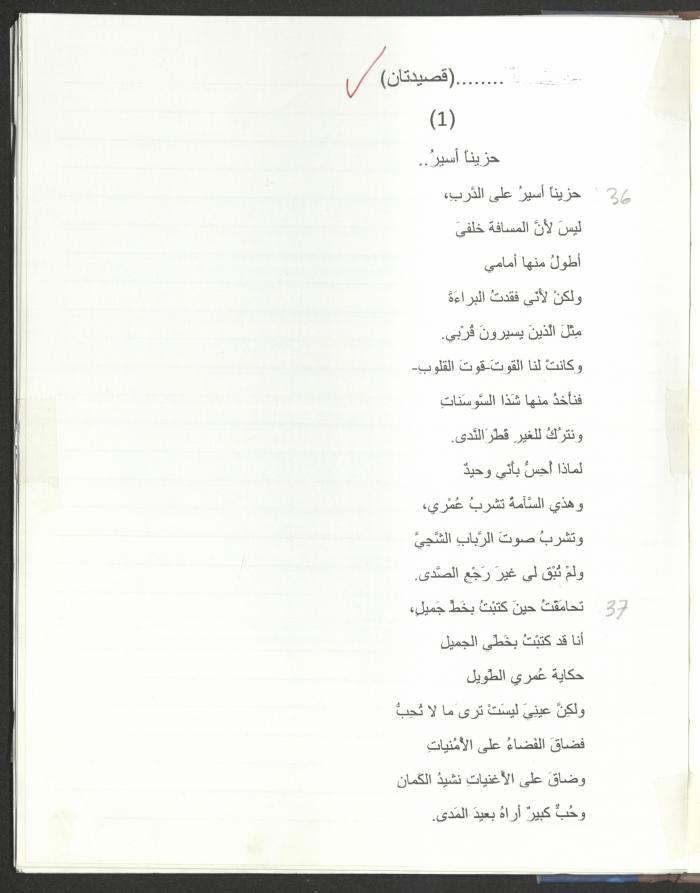 ........(قصيدتان)
(1)
حزيناً أسيرُ..
حزيناً أسيرُ على الدَّربِ،
36
ليسَ لأنَّ المسافة خلفيَ
أطولُ منها أمامي
ولكنْ لأنّي فقدتُ البراءَةَ
مِثْلَ الّذينَ يسيرونَ قُرْبي.
وكانتْ لنا القوتَ-قوتَ القلوبِ-
فنأخذُ منها شَذا السَّوسَناتِ
ونترُكُ للغيرِ قَطْرَ النَّدى.
لماذا أُحِسُّ بأنّي وحيدٌ
وهذي السَّآمةُ تشربُ عُمْري،
وتشربُ صوتَ الرَّبابِ الشَّجِيَّ
ولمْ تُبْقِ لي غيرَ رَجْعِ الصَّدى.
تحامَقْتُ حينَ كتبْتُ بخَطٍّ جَميلٍ،
37
أنا قد كتبْتُ بخَطّي الجميل
حكاية عُمري الطّويل
ولكِنَّ عينِيَ ليسَتْ ترى ما لا تُحِبُّ
فضاقَ الفَضاءُ على الأُمْنياتِ
وضاقَ على الأغنياتِ نشيدُ الكَمان
وحُبٌّ كبيرٌ أراهُ بعيدَ المَدى.